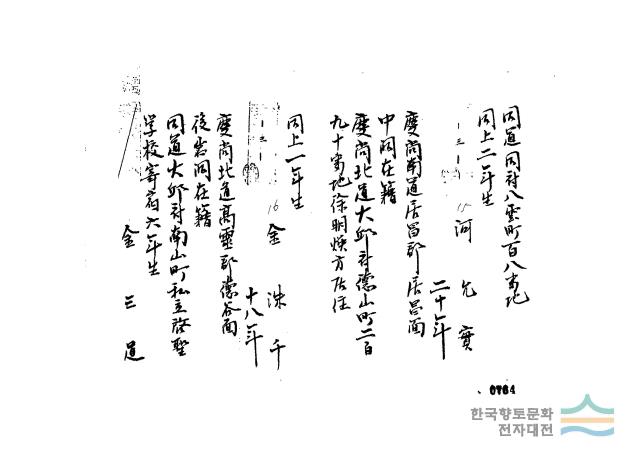 同道同府八雲町百八番地
同上二年生
河允實
二十年
慶尚南道居昌郡居昌面
中同在籍
慶尚北道大邱府德山町二百
九十番地徐明煥方居住
同上一年生
16 金洙千
十八年
慶尚北道高靈郡德谷面
後岩同在籍
同道大邱府南山町私立啓聖
学校寄宿六年生
金三道
0764
한국향토문화
전자대전